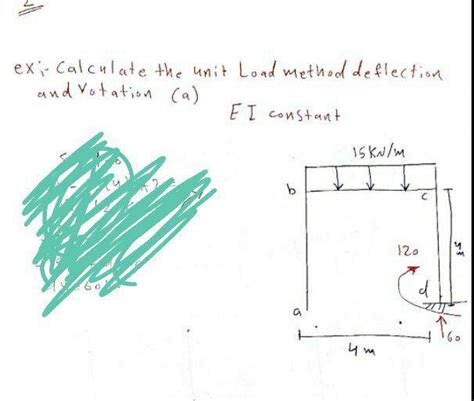 ex;- Calculate the unit Load method deflection
and rotation (a)
EI constant
15 KN/m
b
c
4m
120
d
a
60
4m